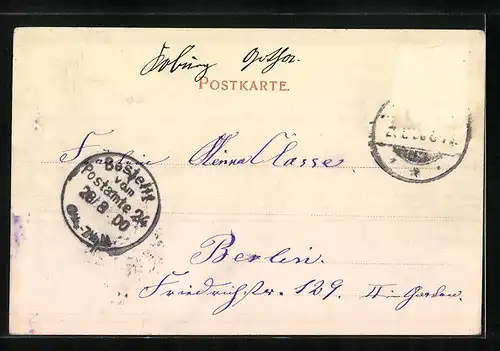 Koburg Gotha.
POSTKARTE.
Fräulein Minna Classe
Bestellt
vom
Postamte 24
28/8 00
Berlin.
Friedrichstr. 129. II im Garten.